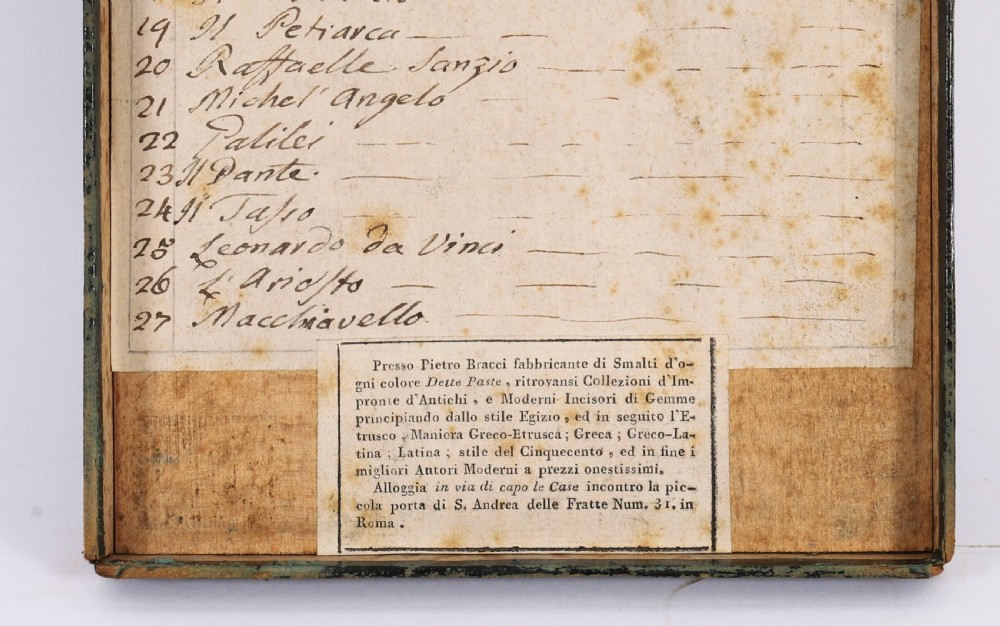 19 Il Petrarca
20 Raffaelle Sanzio
21 Michel' Angelo
22 Galilei
23 Il Dante.
24 Il Tasso
25 Leonardo da Vinci
26 L' Ariosto
27 Macchiavello
Presso Pietro Bracci fabbricante di Smalti d'o-
gni colore Dette Paste, ritrovansi Collezioni d'Im-
pronte d'Antichi, e Moderni Incisori di Gemme
principiando dallo stile Egizio, ed in seguito l'E-
trusco, Maniera Greco-Etrusca; Greca; Greco-La-
tina; Latina; stile del Cinquecento, ed in fine i
migliori Autori Moderni a prezzi onestissimi.
Alloggia in via di capo le Case incontro la pic-
cola porta di S. Andrea delle Fratte Num. 31. in
Roma.